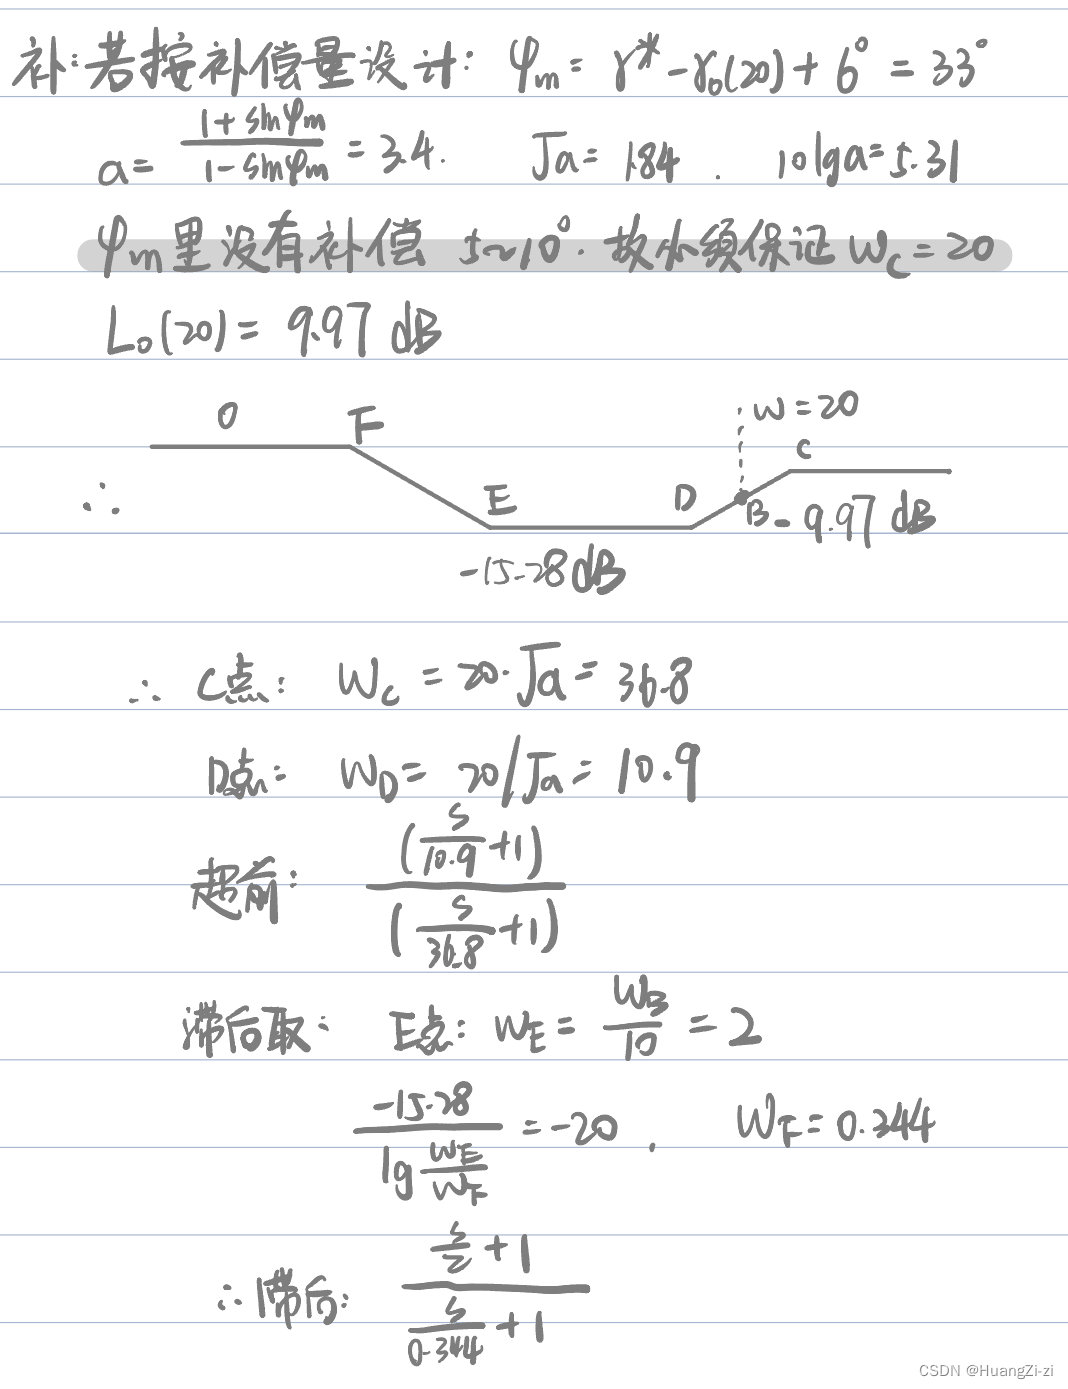 补:若按补偿量设计: φm = γ* - γ₀(20) + 6° = 33°
a = (1+sinφm)/(1-sinφm) = 3.4. √a = 1.84 . 10lga = 5.31
φm里没有补偿 5~10°. 故必须保证 Wc = 20
L₀(20) = 9.97 dB
0 F W = 20
C
∴ E D B -9.97 dB
-15.28dB
∴ C点: Wc = 20·√a = 36.8
D点: W_D = 20/√a = 10.9
超前: (s/10.9 + 1)/(s/36.8 + 1)
滞后取: E点: W_E = W_B/10 = 2
-15.28/(lg W_E/W_F) = -20 . W_F = 0.344
∴滞后: (s/2 + 1)/(s/0.344 + 1)
CSDN @HuangZi-zi